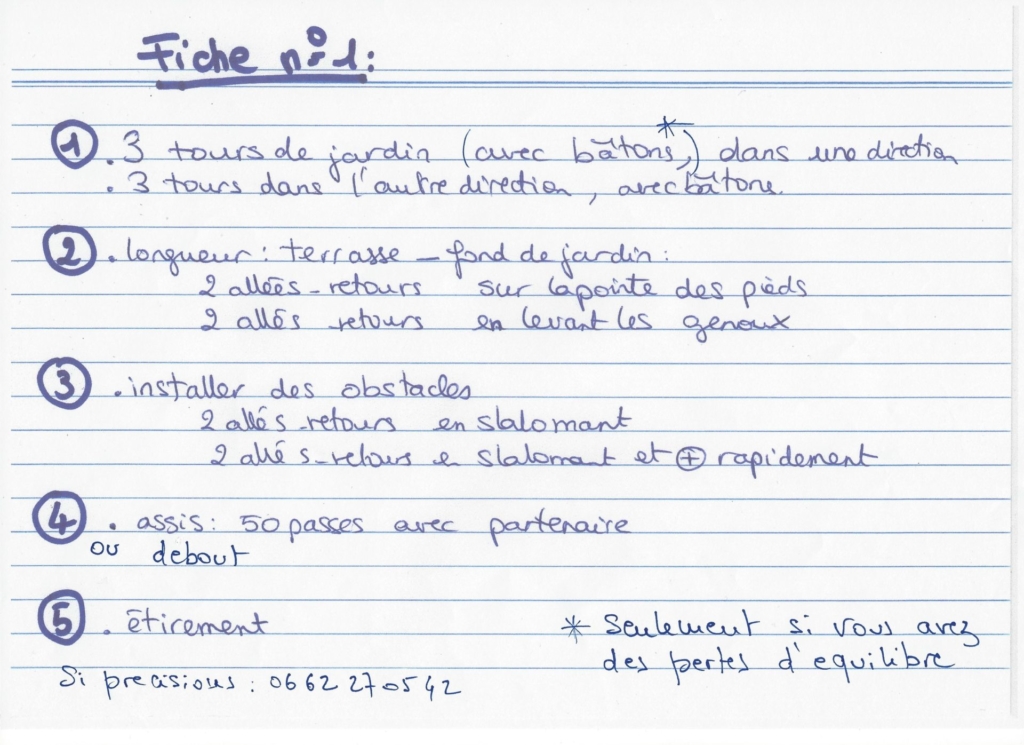 Fiche n°1:
① . 3 tours de jardin (avec bâtons,)* dans une direction
. 3 tours dans l'autre direction, avec bâtons.
② . longueur : terrasse - fond de jardin :
2 allées-retours sur la pointe des pieds
2 allés retours en levant les genoux
③ . installer des obstacles
2 allés-retours en slalomant
2 allés-retours en slalomant et ⊕ rapidement
④ . assis : 50 passes avec partenaire
ou debout
⑤ . étirement
* Seulement si vous avez
des pertes d'equilibre
Si precisions : 06 62 27 05 42